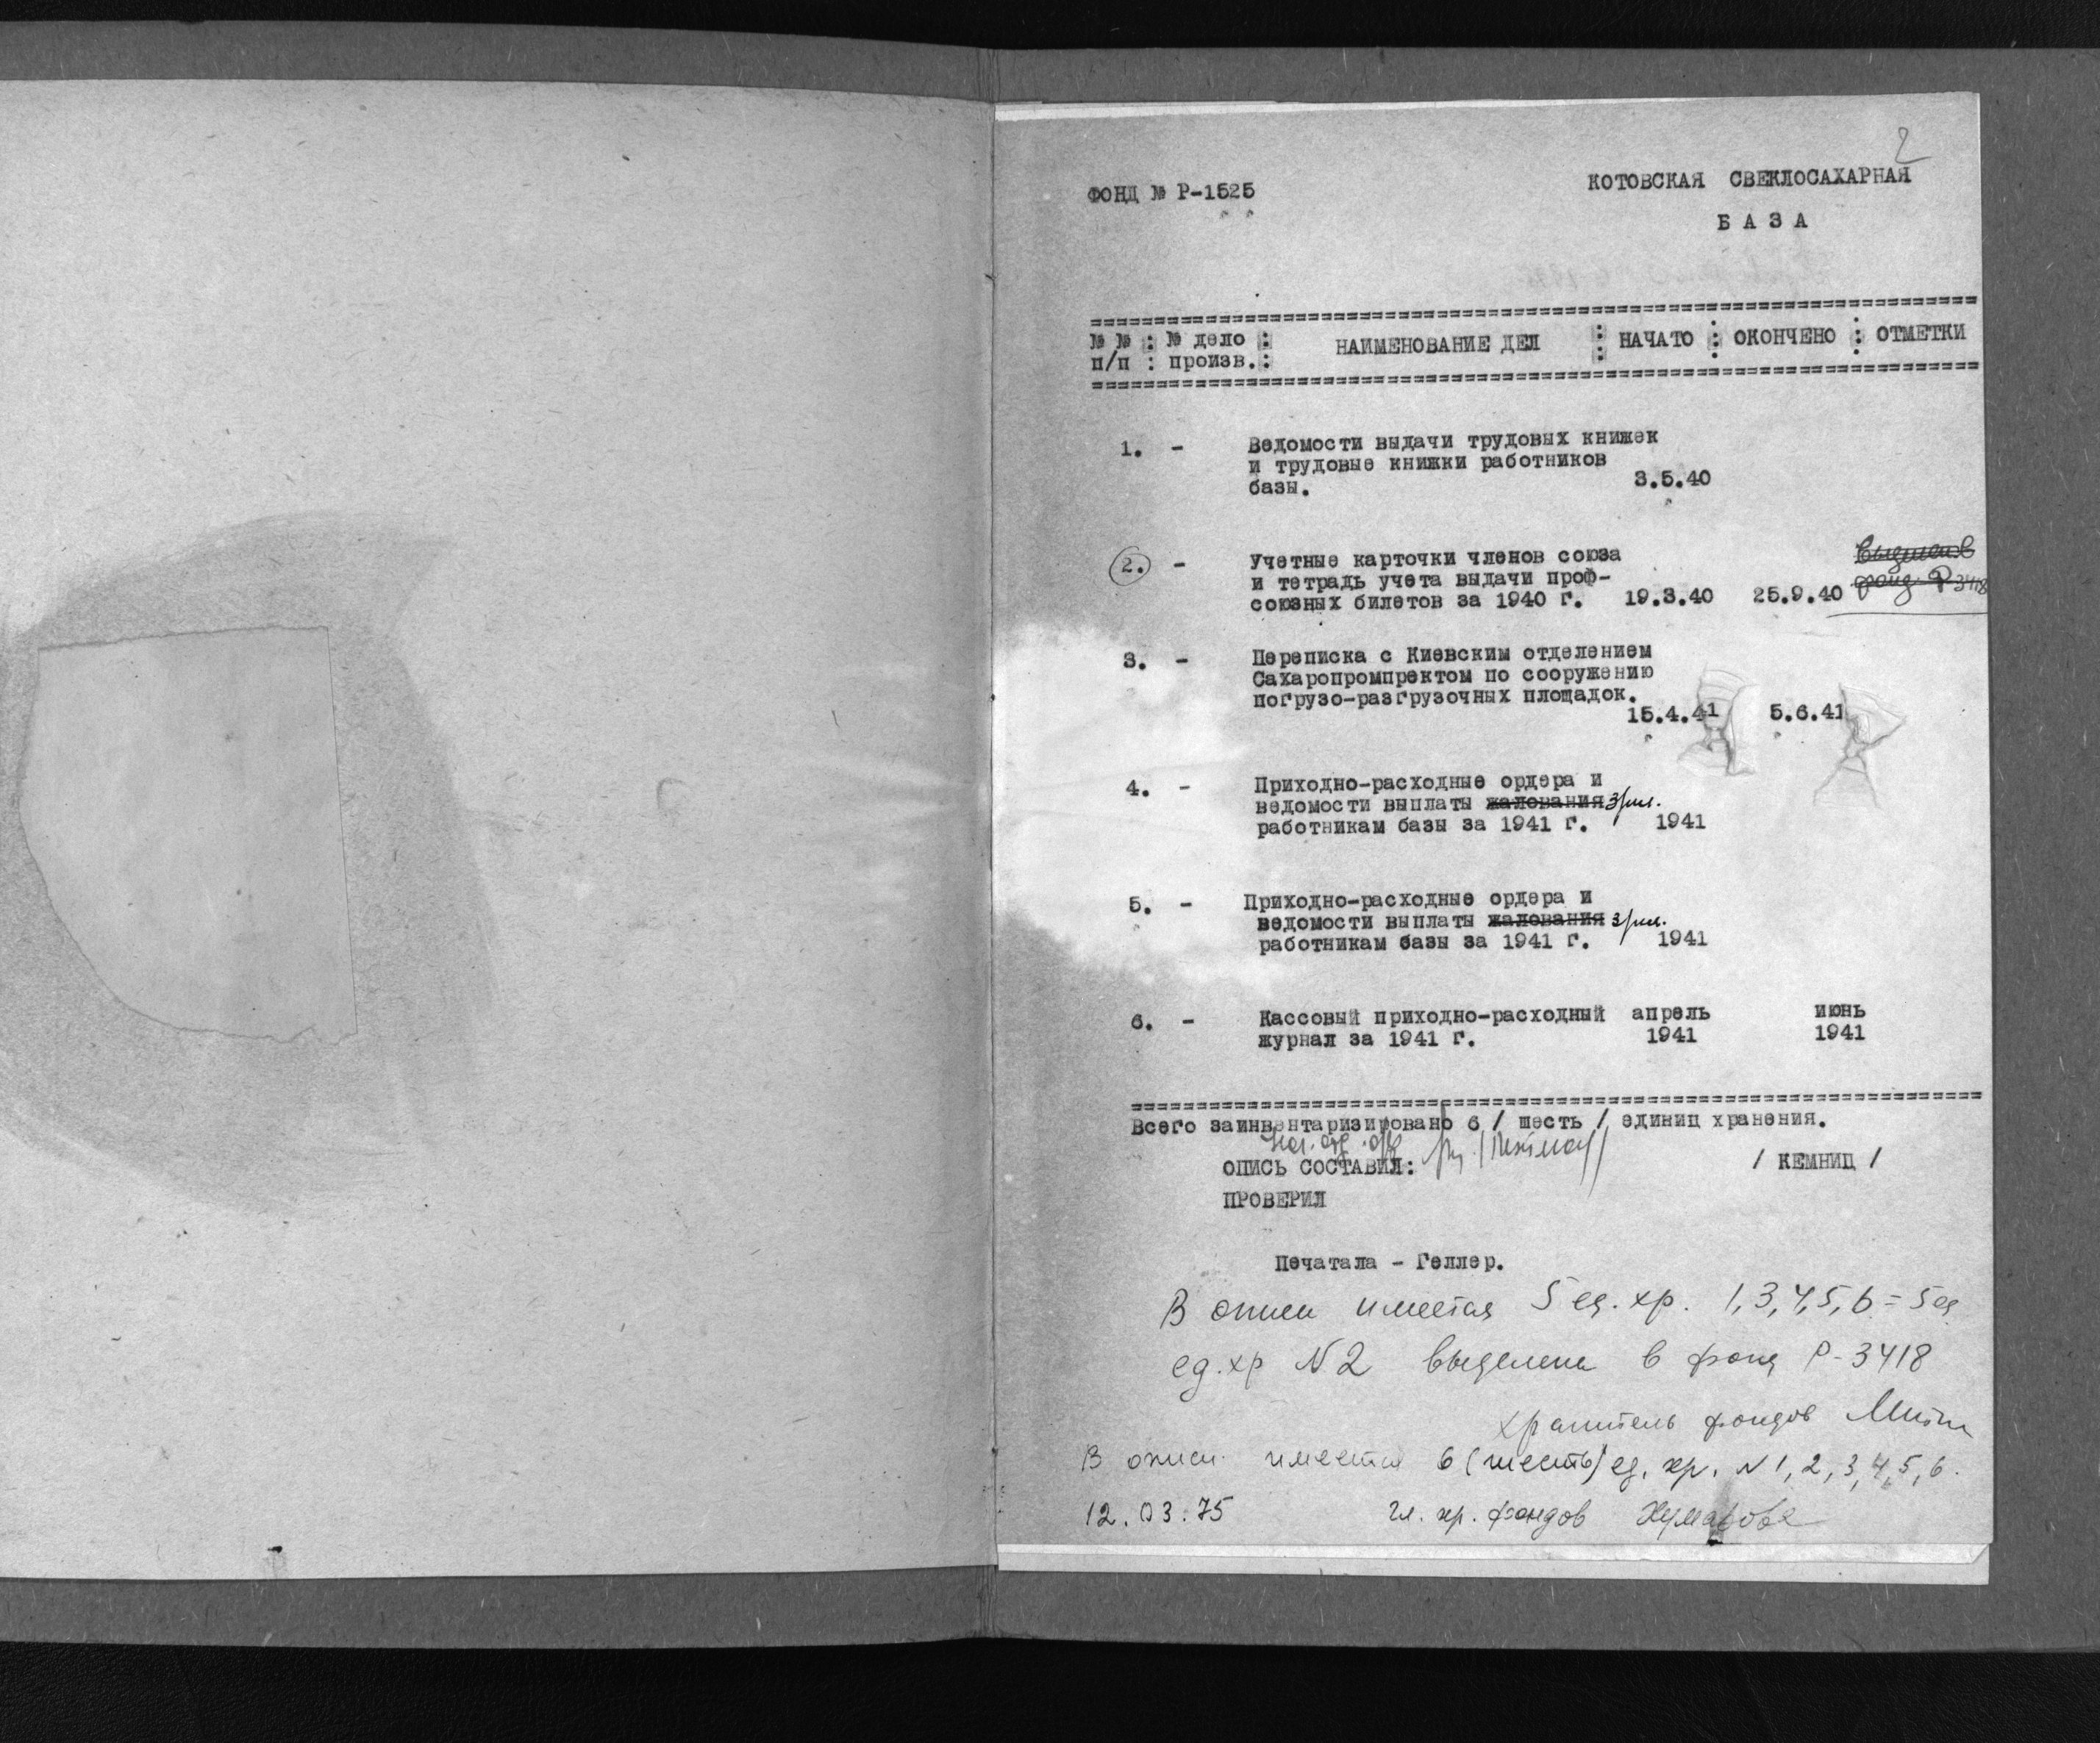 2
ФОНД № Р-1525
КОТОВСКАЯ СВЕКЛОСАХАРНАЯ
БАЗА
№ № : № дело : НАИМЕНОВАНИЕ ДЕЛ : НАЧАТО : ОКОНЧЕНО : ОТМЕТКИ
п/п : произв. :
1. - Ведомости выдачи трудовых книжек
и трудовые книжки работников
базы. 3.5.40
2. - Учетные карточки членов союза
и тетрадь учета выдачи проф-
союзных билетов за 1940 г. 19.3.40 25.9.40
выделен в
фонд Р 3418
3. - Переписка с Киевским отделением
Сахаропромпректом по сооружению
погрузо-разгрузочных площадок.
15.4.41 5.6.41
4. - Приходно-расходные ордера и
ведомости выплаты жалования з/пл.
работникам базы за 1941 г. 1941
5. - Приходно-расходные ордера и
ведомости выплаты жалования з/пл.
работникам базы за 1941 г. 1941
6. - Кассовый приходно-расходный апрель июнь
журнал за 1941 г. 1941 1941
Всего заинвентаризировано 6 / шесть / единиц хранения.
ОПИСЬ СОСТАВИЛ: / КЕМНИЦ /
ПРОВЕРИЛ
Печатала - Геллер.
В описи имеется 5 ед. хр. 1,3,4,5,6 = 5 ед
ед. хр N2 выделена в фонд Р-3418
хранитель фондов
В описи имеется 6 (шесть) ед. хр. N 1,2,3,4,5,6.
12.03.75 Гл. хр. фондов